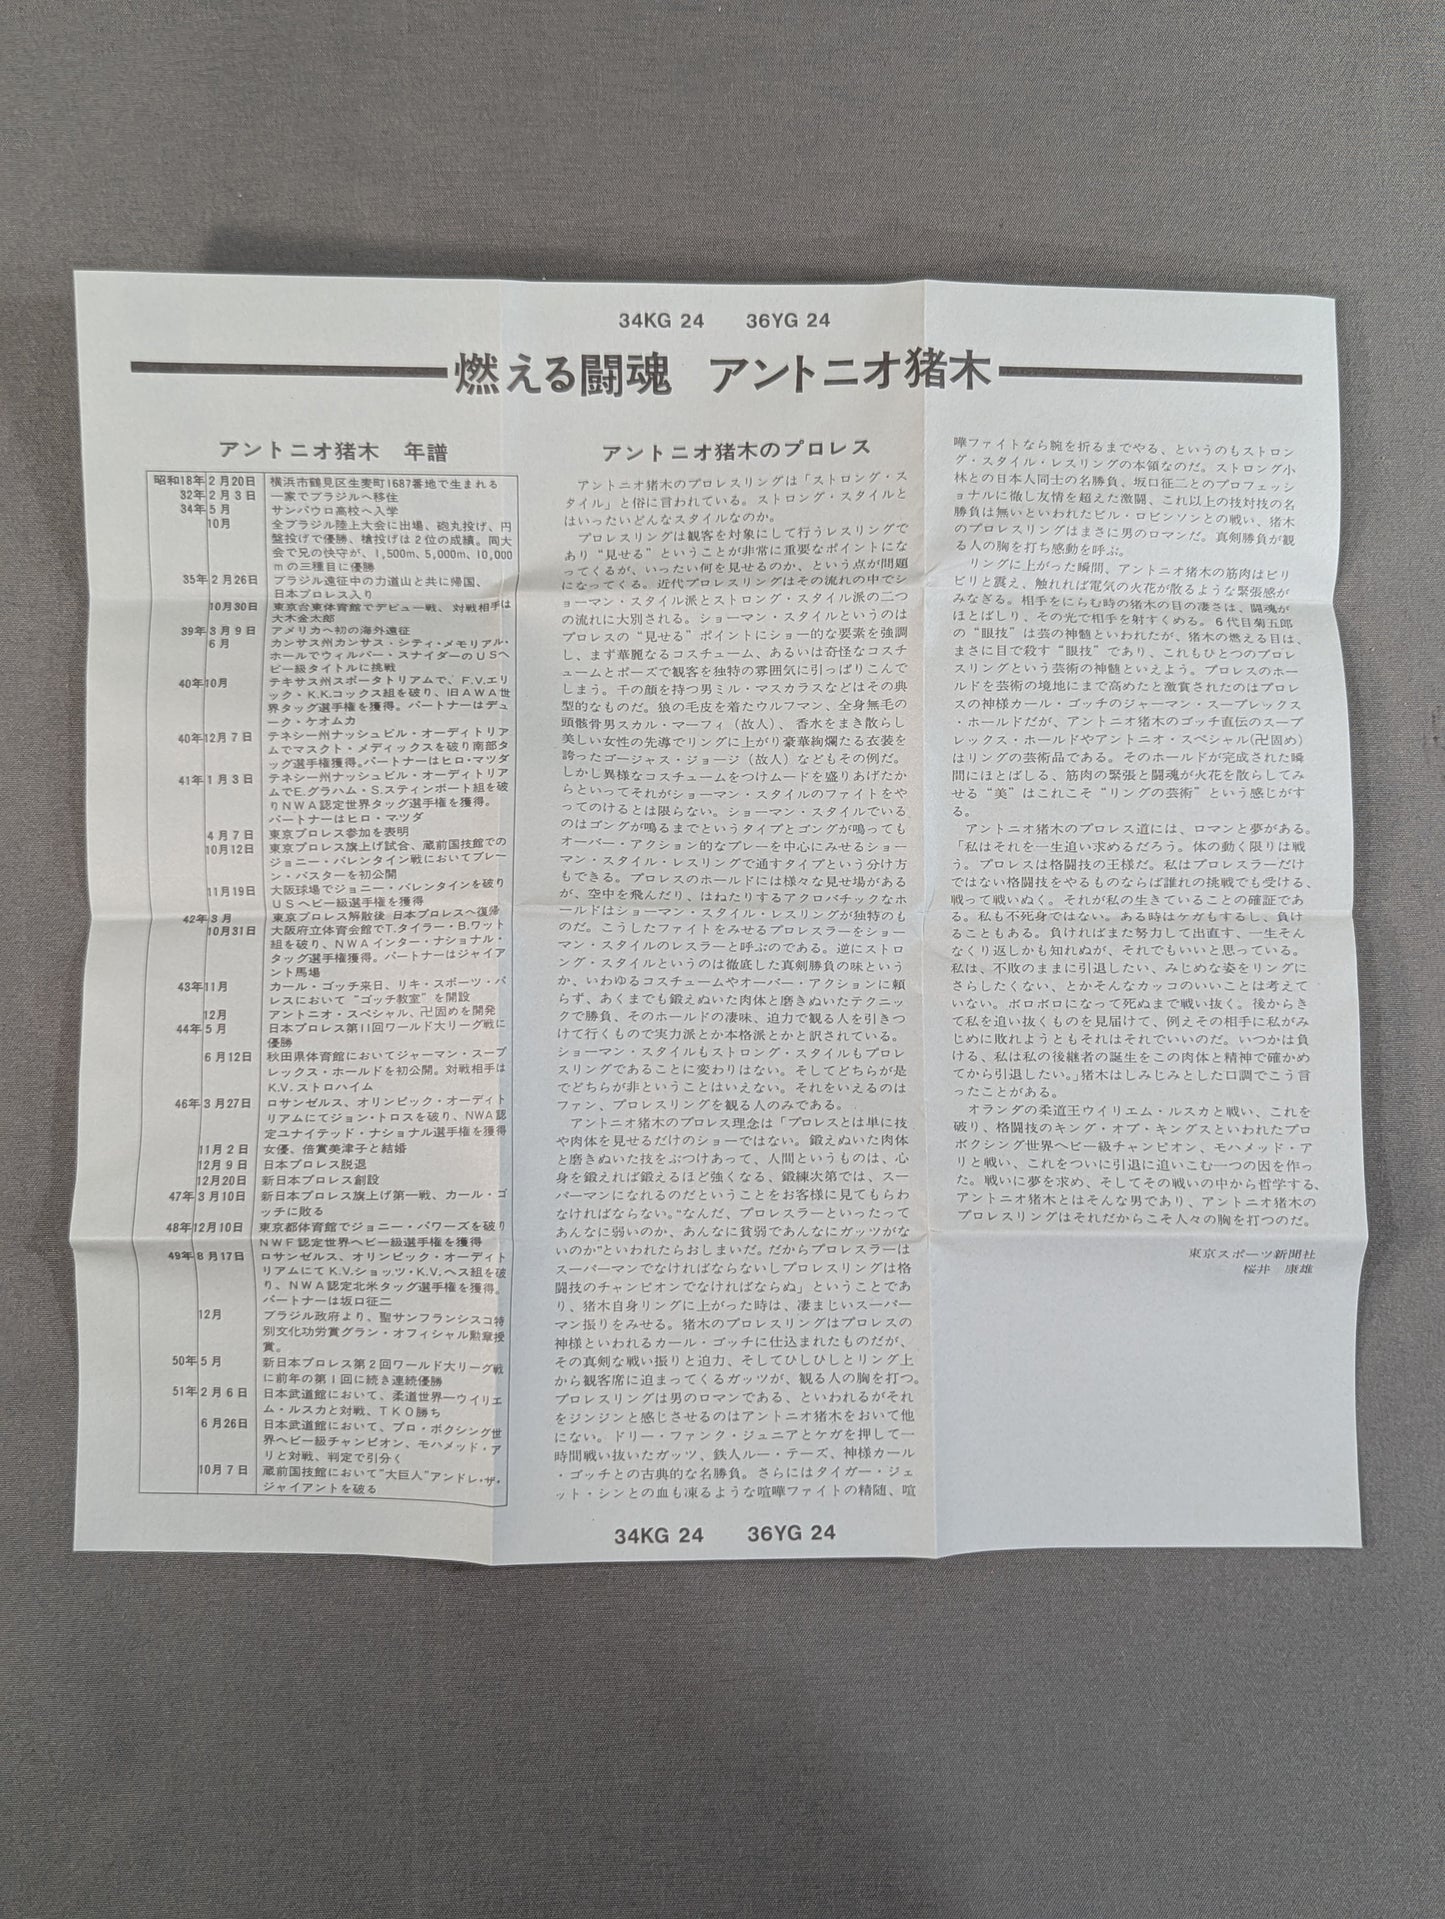 34KG 24　36YG 24
燃える闘魂　アントニオ猪木
アントニオ猪木　年譜
昭和18年2月20日 横浜市鶴見区生麦町1687番地で生まれる
32年2月3日 一家でブラジルへ移住
34年5月 サンパウロ高校へ入学
10月 全ブラジル陸上大会に出場、砲丸投げ、円
盤投げで優勝、槍投げは2位の成績。同大
会で兄の快守が、1,500m、5,000m、10,000
mの三種目に優勝
35年2月26日 ブラジル遠征中の力道山と共に帰国、
日本プロレス入り
10月30日 東京台東体育館でデビュー戦、対戦相手は
大木金太郎
39年3月9日 アメリカへ初の海外遠征
6月 カンサス州カンサス・シティ・メモリアル・
ホールでウィルバー・スナイダーのUSヘ
ビー級タイトルに挑戦
40年10月 テキサス州スポータトリアムで、F.V.エリ
ック・K.K.コックス組を破り、旧AWA世
界タッグ選手権を獲得。パートナーはデュ
ーク・ケオムカ
40年12月7日 テネシー州ナッシュビル・オーディトリア
ムでマスクト・メディックスを破り南部タ
ッグ選手権獲得。パートナーはヒロ・マツダ
41年1月3日 テネシー州ナッシュビル・オーディトリア
ムでE.グラハム・S.スティンボート組を破
りNWA認定世界タッグ選手権を獲得。
パートナーはヒロ・マツダ
4月7日 東京プロレス参加を表明
10月12日 東京プロレス旗上げ試合、蔵前国技館での
ジョニー・バレンタイン戦においてブレー
ン・バスターを初公開
11月19日 大阪球場でジョニー・バレンタインを破り
USヘビー級選手権を獲得
42年3月 東京プロレス解散後 日本プロレスへ復帰
10月31日 大阪府立体育会館でT.タイラー・B.ワット
組を破り、NWAインター・ナショナル・
タッグ選手権獲得。パートナーはジャイア
ント馬場
43年11月 カール・ゴッチ来日、リキ・スポーツ・パ
レスにおいて“ゴッチ教室”を開設
12月 アントニオ・スペシャル、卍固めを開発
44年5月 日本プロレス第11回ワールド大リーグ戦に
優勝
6月12日 秋田県体育館においてジャーマン・スープ
レックス・ホールドを初公開。対戦相手は
K.V.ストロハイム
46年3月27日 ロサンゼルス、オリンピック・オーディト
リアムにてジョン・トロスを破り、NWA認
定ユナイテッド・ナショナル選手権を獲得
11月2日 女優、倍賞美津子と結婚
12月9日 日本プロレス脱退
12月20日 新日本プロレス創設
47年3月10日 新日本プロレス旗上げ第一戦、カール・ゴ
ッチに敗る
48年12月10日 東京都体育館でジョニー・パワーズを破り
NWF認定世界ヘビー級選手権を獲得
49年8月17日 ロサンゼルス、オリンピック・オーディト
リアムにてK.V.ショッツ・K.V.ヘス組を破
り、NWA認定北米タッグ選手権を獲得。
パートナーは坂口征二
12月 ブラジル政府より、聖サンフランシスコ特
別文化功労賞グラン・オフィシャル勲章授
賞。
50年5月 新日本プロレス第2回ワールド大リーグ戦
に前年の第1回に続き連続優勝
51年2月6日 日本武道館において、柔道世界一ウイリエ
ム・ルスカと対戦、TKO勝ち
6月26日 日本武道館において、プロ・ボクシング世
界ヘビー級チャンピオン、モハメッド・ア
リと対戦、判定で引分く
10月7日 蔵前国技館において“大巨人”アンドレ・ザ・
ジャイアントを破る
アントニオ猪木のプロレス
アントニオ猪木のプロレスリングは「ストロング・ス
タイル」と俗に言われている。ストロング・スタイルと
はいったいどんなスタイルなのか。
プロレスリングは観客を対象にして行うレスリングで
あり“見せる”ということが非常に重要なポイントにな
ってくるが、いったい何を見せるのか、という点が問題
になってくる。近代プロレスリングはその流れの中でシ
ョーマン・スタイル派とストロング・スタイル派の二つ
の流れに大別される。ショーマン・スタイルというのは
プロレスの“見せる”ポイントにショー的な要素を強調
し、まず華麗なるコスチューム、あるいは奇怪なコスチ
ュームとポーズで観客を独特の雰囲気に引っぱりこんで
しまう。千の顔を持つ男ミル・マスカラスなどはその典
型的なものだ。狼の毛皮を着たウルフマン、全身無毛の
頭骸骨男スカル・マーフィ（故人）、香水をまき散らし
美しい女性の先導でリングに上がり豪華絢爛たる衣装を
誇ったゴージャス・ジョージ（故人）などもその例だ。
しかし異様なコスチュームをつけムードを盛りあげたか
らといってそれがショーマン・スタイルのファイトをや
ってのけるとは限らない。ショーマン・スタイルでいる
のはゴングが鳴るまでというタイプとゴングが鳴っても
オーバー・アクション的なプレーを中心にみせるショー
マン・スタイル・レスリングで通すタイプという分け方
もできる。プロレスのホールドには様々な見せ場がある
が、空中を飛んだり、はねたりするアクロバチックなホ
ールドはショーマン・スタイル・レスリングが独特のも
のだ。こうしたファイトをみせるプロレスラーをショー
マン・スタイルのレスラーと呼ぶのである。逆にストロ
ング・スタイルというのは徹底した真剣勝負の味という
か、いわゆるコスチュームやオーバー・アクションに頼
らず、あくまでも鍛えぬいた肉体と磨きぬいたテクニッ
クで勝負、そのホールドの凄味、迫力で観る人を引きつ
けて行くもので実力派とか本格派とかと訳されている。
ショーマン・スタイルもストロング・スタイルもプロレ
スリングであることに変わりはない。そしてどちらが是
でどちらが非ということはいえない。それをいえるのは
ファン、プロレスリングを観る人のみである。
アントニオ猪木のプロレス理念は「プロレスとは単に技
や肉体を見せるだけのショーではない。鍛えぬいた肉体
と磨きぬいた技をぶつけあって、人間というものは、心
身を鍛えれば鍛えるほど強くなる、鍛練次第では、スー
パーマンになれるのだということをお客様に見てもらわ
なければならない。“なんだ、プロレスラーといったって
あんなに弱いのか、あんなに貧弱であんなにガッツがな
いのか”といわれたらおしまいだ。だからプロレスラーは
スーパーマンでなければならないしプロレスリングは格
闘技のチャンピオンでなければならぬ」ということであ
り、猪木自身リングに上がった時は、凄まじいスーパー
マン振りをみせる。猪木のプロレスリングはプロレスの
神様といわれるカール・ゴッチに仕込まれたものだが、
その真剣な戦い振りと迫力、そしてひしひしとリング上
から観客席に迫まってくるガッツが、観る人の胸を打つ。
プロレスリングは男のロマンである、といわれるがそれ
をジンジンと感じさせるのはアントニオ猪木をおいて他
にない。ドリー・ファンク・ジュニアとケガを押して一
時間戦い抜いたガッツ、鉄人ルー・テーズ、神様カール
・ゴッチとの古典的な名勝負。さらにはタイガー・ジェ
ット・シンとの血も凍るような喧嘩ファイトの精随、喧
嘩ファイトなら腕を折るまでやる、というのもストロン
グ・スタイル・レスリングの本領なのだ。ストロング小
林との日本人同士の名勝負、坂口征二とのプロフェッシ
ョナルに徹し友情を超えた激闘、これ以上の技対技の名
勝負は無いといわれたビル・ロビンソンとの戦い、猪木
のプロレスリングはまさに男のロマンだ。真剣勝負が観
る人の胸を打ち感動を呼ぶ。
リングに上がった瞬間、アントニオ猪木の筋肉はピリ
ピリと震え、触れれば電気の火花が散るような緊張感が
みなぎる。相手をにらむ時の猪木の目の凄さは、闘魂が
ほとばしり、その光で相手を射すくめる。6代目菊五郎
の“眼技”は芸の神髄といわれたが、猪木の燃える目は、
まさに目で殺す“眼技”であり、これもひとつのプロレ
スリングという芸術の神髄といえよう。プロレスのホー
ルドを芸術の境地にまで高めたと激賞されたのはプロレ
スの神様カール・ゴッチのジャーマン・スープレックス
・ホールドだが、アントニオ猪木のゴッチ直伝のスープ
レックス・ホールドやアントニオ・スペシャル(卍固め)
はリングの芸術品である。そのホールドが完成された瞬
間にほとばしる、筋肉の緊張と闘魂が火花を散らしてみ
せる“美”はこれこそ“リングの芸術”という感じがす
る。
アントニオ猪木のプロレス道には、ロマンと夢がある。
「私はそれを一生追い求めるだろう。体の動く限りは戦
う。プロレスは格闘技の王様だ。私はプロレスラーだけ
ではない格闘技をやるものならば誰れの挑戦でも受ける、
戦って戦いぬく。それが私の生きていることの確証であ
る。私も不死身ではない。ある時はケガもするし、負け
ることもある。負ければまた努力して出直す、一生そん
なくり返しかも知れぬが、それでもいいと思っている。
私は、不敗のままに引退したい、みじめな姿をリングに
さらしたくない、とかそんなカッコのいいことは考えて
いない。ボロボロになって死ぬまで戦い抜く。後からき
て私を追い抜くものを見届けて、例えその相手に私がみ
じめに敗れようともそれはそれでいいのだ。いつかは負
ける、私は私の後継者の誕生をこの肉体と精神で確かめ
てから引退したい。」猪木はしみじみとした口調でこう言
ったことがある。
オランダの柔道王ウイリエム・ルスカと戦い、これを
破り、格闘技のキング・オブ・キングスといわれたプロ
ボクシング世界ヘビー級チャンピオン、モハメッド・ア
リと戦い、これをついに引退に追いこむ一つの因を作っ
た。戦いに夢を求め、そしてその戦いの中から哲学する、
アントニオ猪木とはそんな男であり、アントニオ猪木の
プロレスリングはそれだからこそ人々の胸を打つのだ。
東京スポーツ新聞社
桜井　康雄
34KG 24　36YG 24